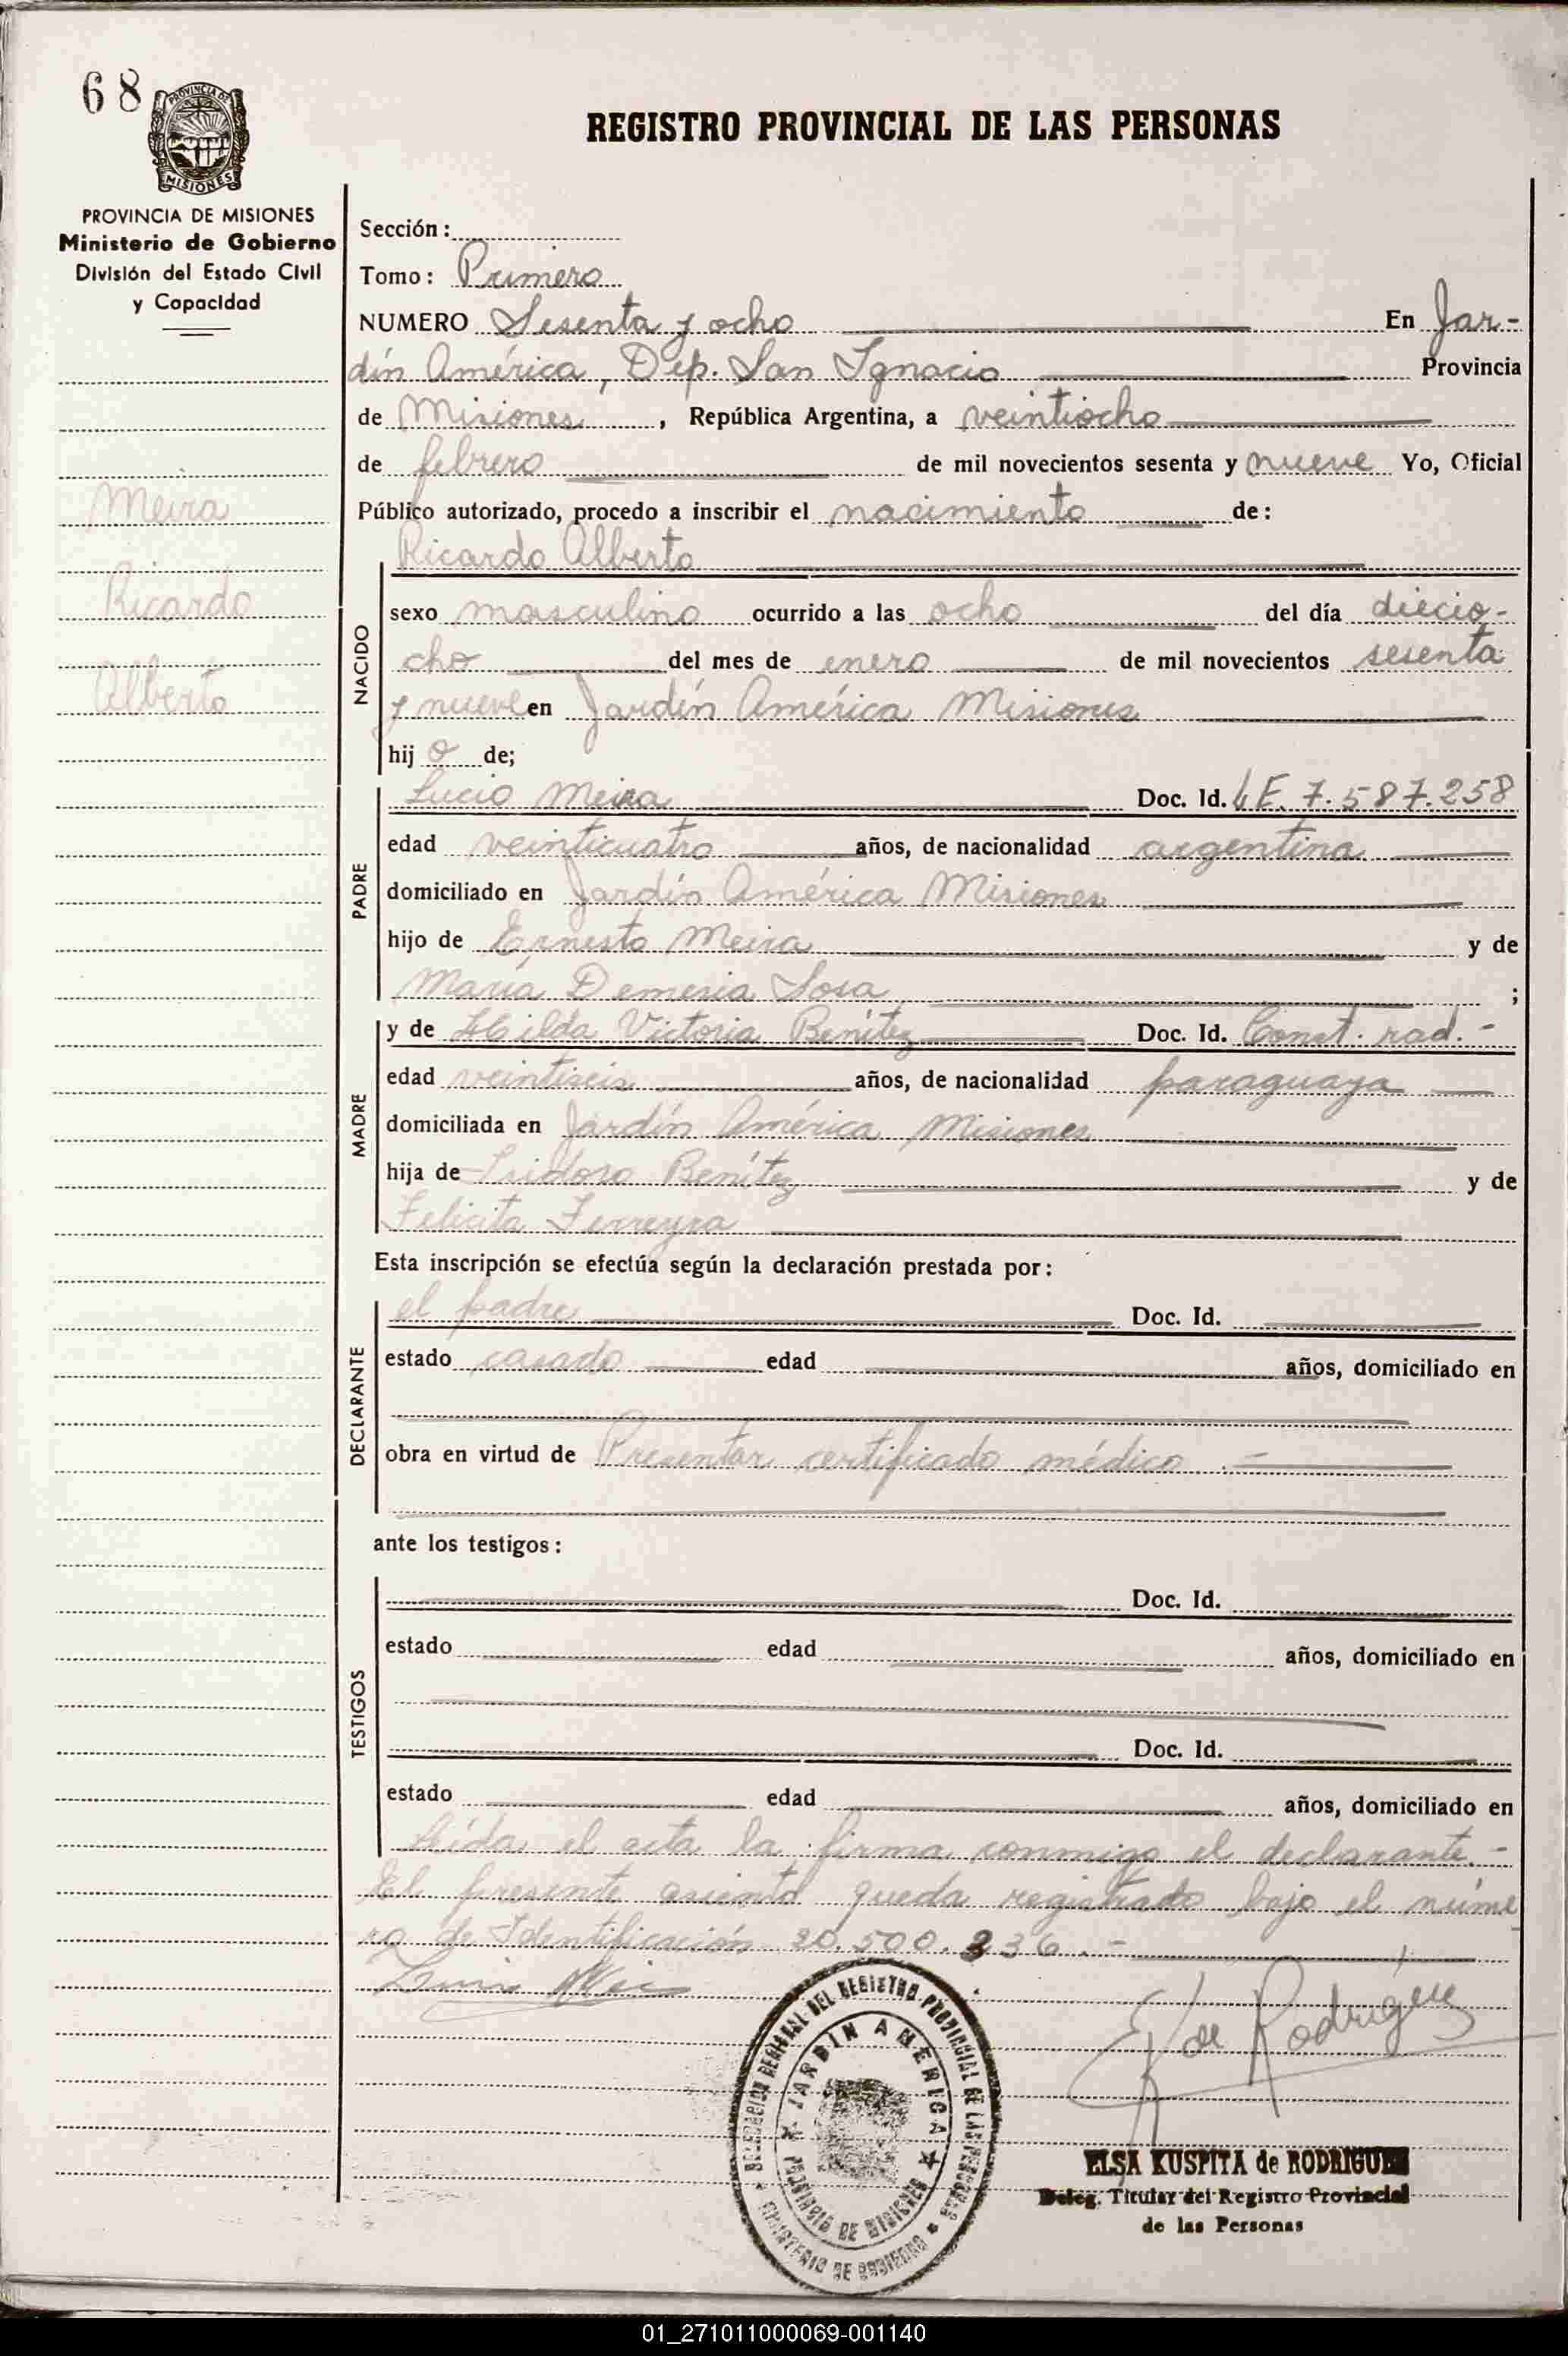 68
PROVINCIA DE
MISIONES
REGISTRO PROVINCIAL DE LAS PERSONAS
PROVINCIA DE MISIONES
Ministerio de Gobierno
División del Estado Civil
y Capacidad
Meira
Ricardo
Alberto
Sección :
Tomo : Primero
NUMERO Sesenta y ocho En Jar-
dín América, Dep. San Ignacio Provincia
de Misiones , República Argentina, a veintiocho
de febrero de mil novecientos sesenta y nueve Yo, Oficial
Público autorizado, procedo a inscribir el nacimiento de :
Ricardo Alberto
NACIDO
sexo masculino ocurrido a las ocho del día diecio-
cho del mes de enero de mil novecientos sesenta
y nueve en Jardín América Misiones
hij o de;
PADRE
Lucio Meira Doc. Id. LE. 7.587.258
edad veinticuatro años, de nacionalidad argentina
domiciliado en Jardín América Misiones
hijo de Ernesto Meira y de
María Demesia Sosa ;
MADRE
y de Hilda Victoria Benítez Doc. Id. Const. rad.-
edad veintiseis años, de nacionalidad paraguaya
domiciliada en Jardín América Misiones
hija de Isidoro Benítez y de
Felicita Ferreyra
Esta inscripción se efectúa según la declaración prestada por :
DECLARANTE
el padre Doc. Id.
estado casado edad años, domiciliado en
obra en virtud de Presentar certificado médico .-
ante los testigos :
TESTIGOS
Doc. Id.
estado edad años, domiciliado en
Doc. Id.
estado edad años, domiciliado en
Leída el acta la firma conmigo el declarante.-
El presente asiento queda registrado bajo el núme
ro de Identificación 20.500.236.-
E K de Rodríguez
DELEGACION DEL REGISTRO PROVINCIAL DE LAS PERSONAS
JARDIN AMERICA
PROVINCIA DE MISIONES
MINISTERIO DE GOBIERNO
ELSA KUSPITA de RODRIGUEZ
Deleg. Titular del Registro Provincial
de las Personas
01_271011000069-001140